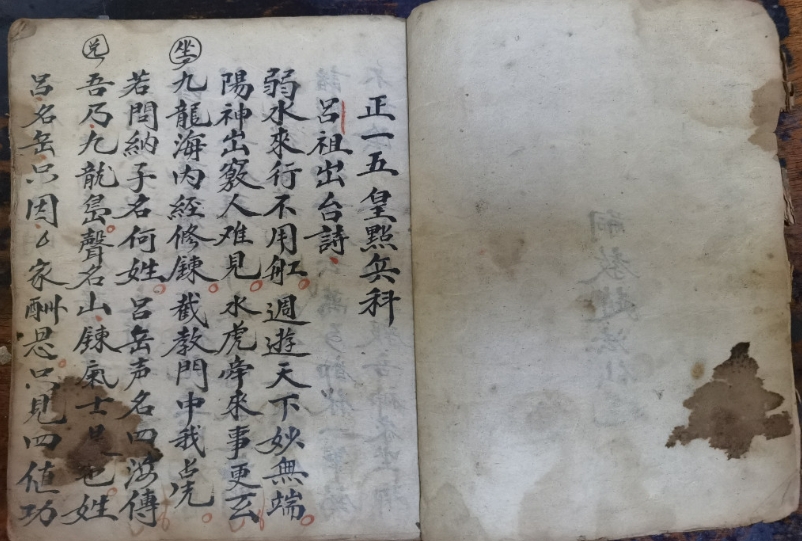 正一五皇點兵科
呂祖出台詩
弱水來行不用舡。週遊天下妙無端。
陽神出竅人难見。水虎來事更玄。
坐
九龍海内經修錬。截教門中我占先。
若問納子名何姓。呂岳声名四海傳
吾乃九龍島。聲名山錬氣士是也。姓
呂名岳只因家酬恩。只見四值功